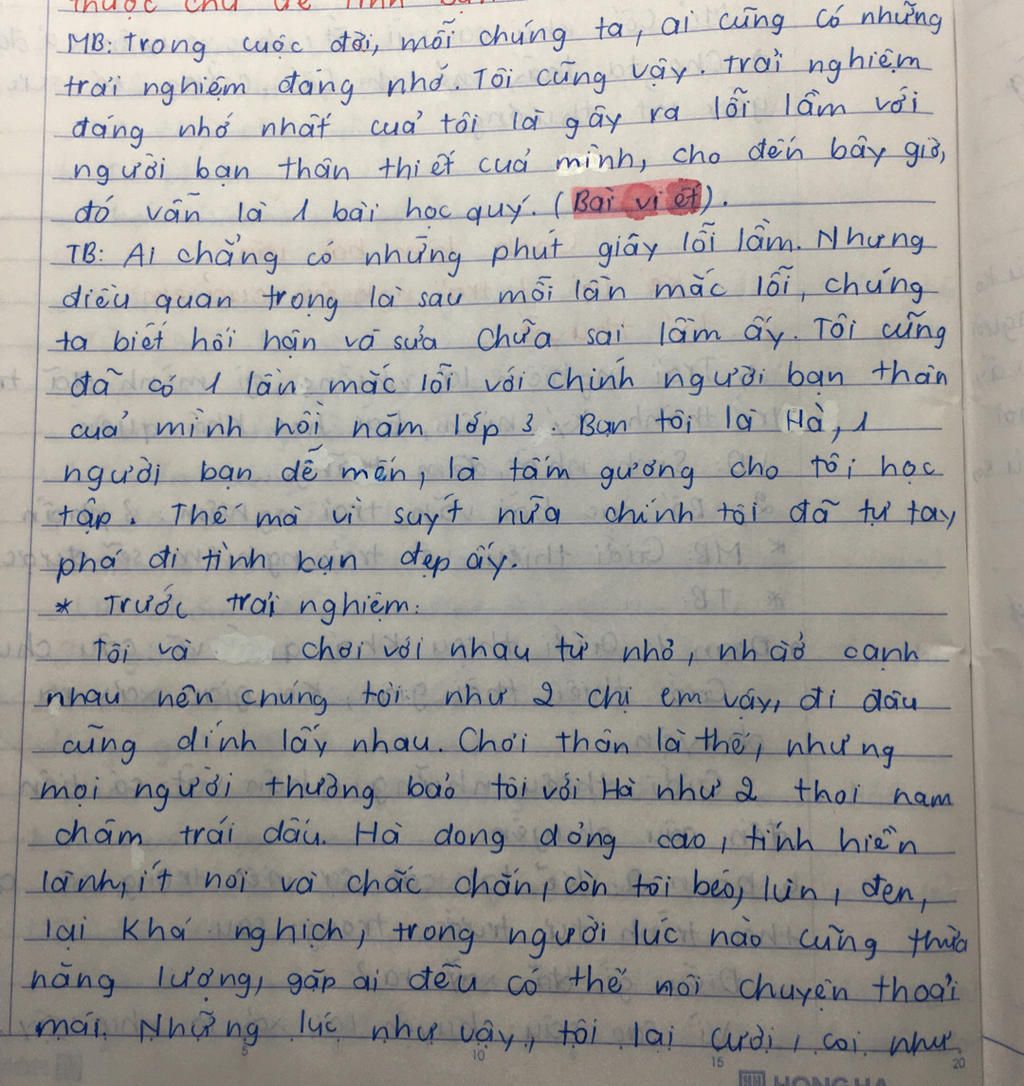 thuộc chủ đề tình bạn
MB: Trong cuộc đời, mỗi chúng ta, ai cũng có những
trải nghiệm đáng nhớ. Tôi cũng vậy. Trải nghiệm
đáng nhớ nhất của tôi là gây ra lỗi lầm với
người bạn thân thiết của mình, cho đến bây giờ,
đó vẫn là 1 bài học quý. (Bài viết).
TB: Ai chẳng có những phút giây lỗi lầm. Nhưng
điều quan trọng là sau mỗi lần mắc lỗi, chúng
ta biết hối hận và sửa chữa sai lầm ấy. Tôi cũng
đã có 1 lần mắc lỗi với chính người bạn thân
của mình hồi năm lớp 3. Bạn tôi là Hà, 1
người bạn dễ mến, là tấm gương cho tôi học
tập. Thế mà vì suýt nữa chính tôi đã tự tay
phá đi tình bạn đẹp ấy.
* Trước trải nghiệm:
Tôi và chơi với nhau từ nhỏ, nhà ở cạnh
nhau nên chúng tôi như 2 chị em vậy, đi đâu
cũng dính lấy nhau. Chơi thân là thế, nhưng
mọi người thường bảo tôi với Hà như 2 thỏi nam
châm trái dấu. Hà dong dỏng cao, tính hiền
lành, ít nói và chắc chắn, còn tôi béo, lùn, đen,
lại khá nghịch, trong người lúc nào cũng thừa
năng lượng, gặp ai đều có thể nói chuyện thoải
mái. Những lúc như vậy, tôi lại cười, coi như
5 10 15 20
HONG HA